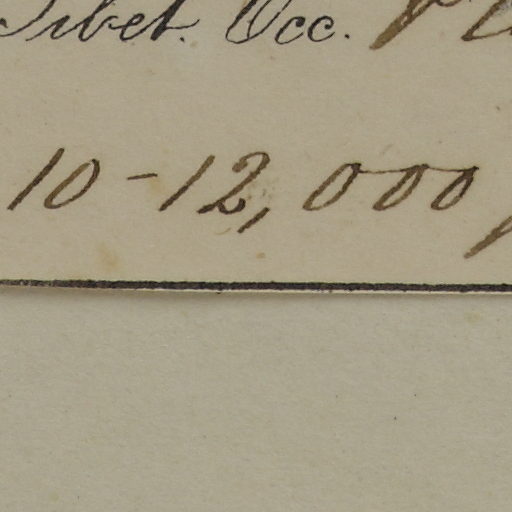 Tibet. Occ.
10-12,000